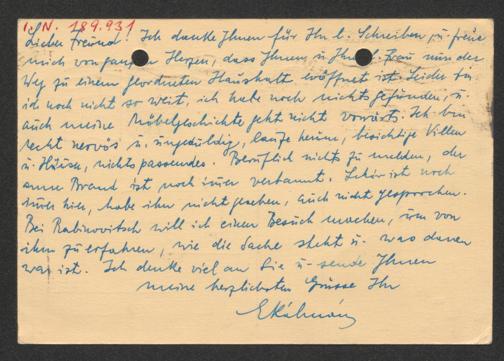 I.N. 189.931
Lieber Freund! Ich danke Ihnen für Ihr l. Schreiben, u. freue
mich von ganzem Herzen, dass Ihnen u. Ihrer l. Frau nun der
Weg zu einem geordneten Haushalt eröffnet ist. Leider bin
ich noch nicht so weit, ich habe noch nichts gefunden, u.
auch meine Möbelgeschichte geht nicht vorwärts. Ich bin
recht nervös u. ungeduldig, laufe herum, besichtige Villen
u. Häuser, nichts passendes. Beruflich nichts zu melden, der
arme Brand ist noch immer verbannt. ist noch
immer hier, habe ihn nicht gesehen, auch nicht gesprochen.
Bei Rabinovitsch will ich einen Besuch machen, um von
ihm zu erfahren, wie die Sache steht u. was daran
war ist. Ich denke viel an Sie u. sende Ihnen
meine herzlichsten Grüsse Ihr
EKálmán